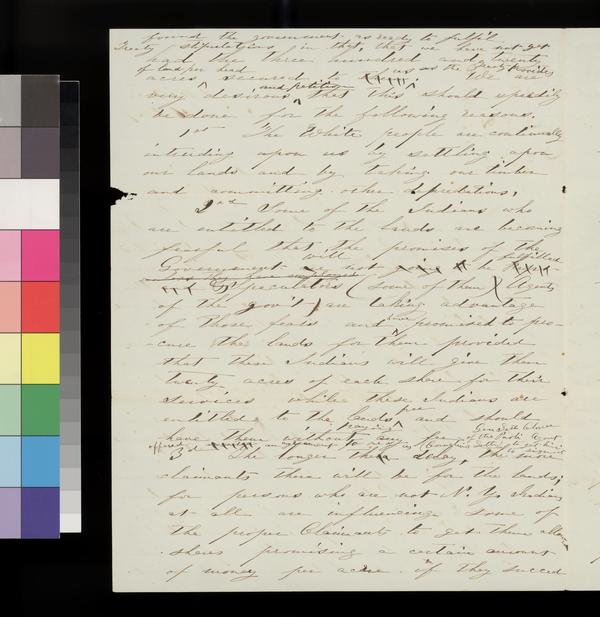 found the government as ready to fulfil
Treaty stipulations, in that, that we have not yet
had the three hundred and twenty
of land per head
acres secured to us as the Treaty provides We are
very desirous and petition that this should speedily
be done for the following reasons.
1st The White people are continually
intruding upon us by settling upon
our lands and by taking our timber
and committing other depredations,
2nd Some of the Indians who
are entitled to the lands are becoming
fearful that the promises of the
Government will not be fulfilled
Speculators (some of them Agents
of the gov't) are taking advantage
of those fears and have promised to pro-
cure the lands for them provided
that these Indians will give them
twenty acres of each share for their
services while these Indians are
entitled to the lands free and should
have them without paying any fee
3d The longer the delay, the more
claimants there will be for the lands;
for persons who are not N. Y. Indians
at all are influencing some of
the proper Claimants to get them
shares promising a certain amount
of money per acre if they succeed